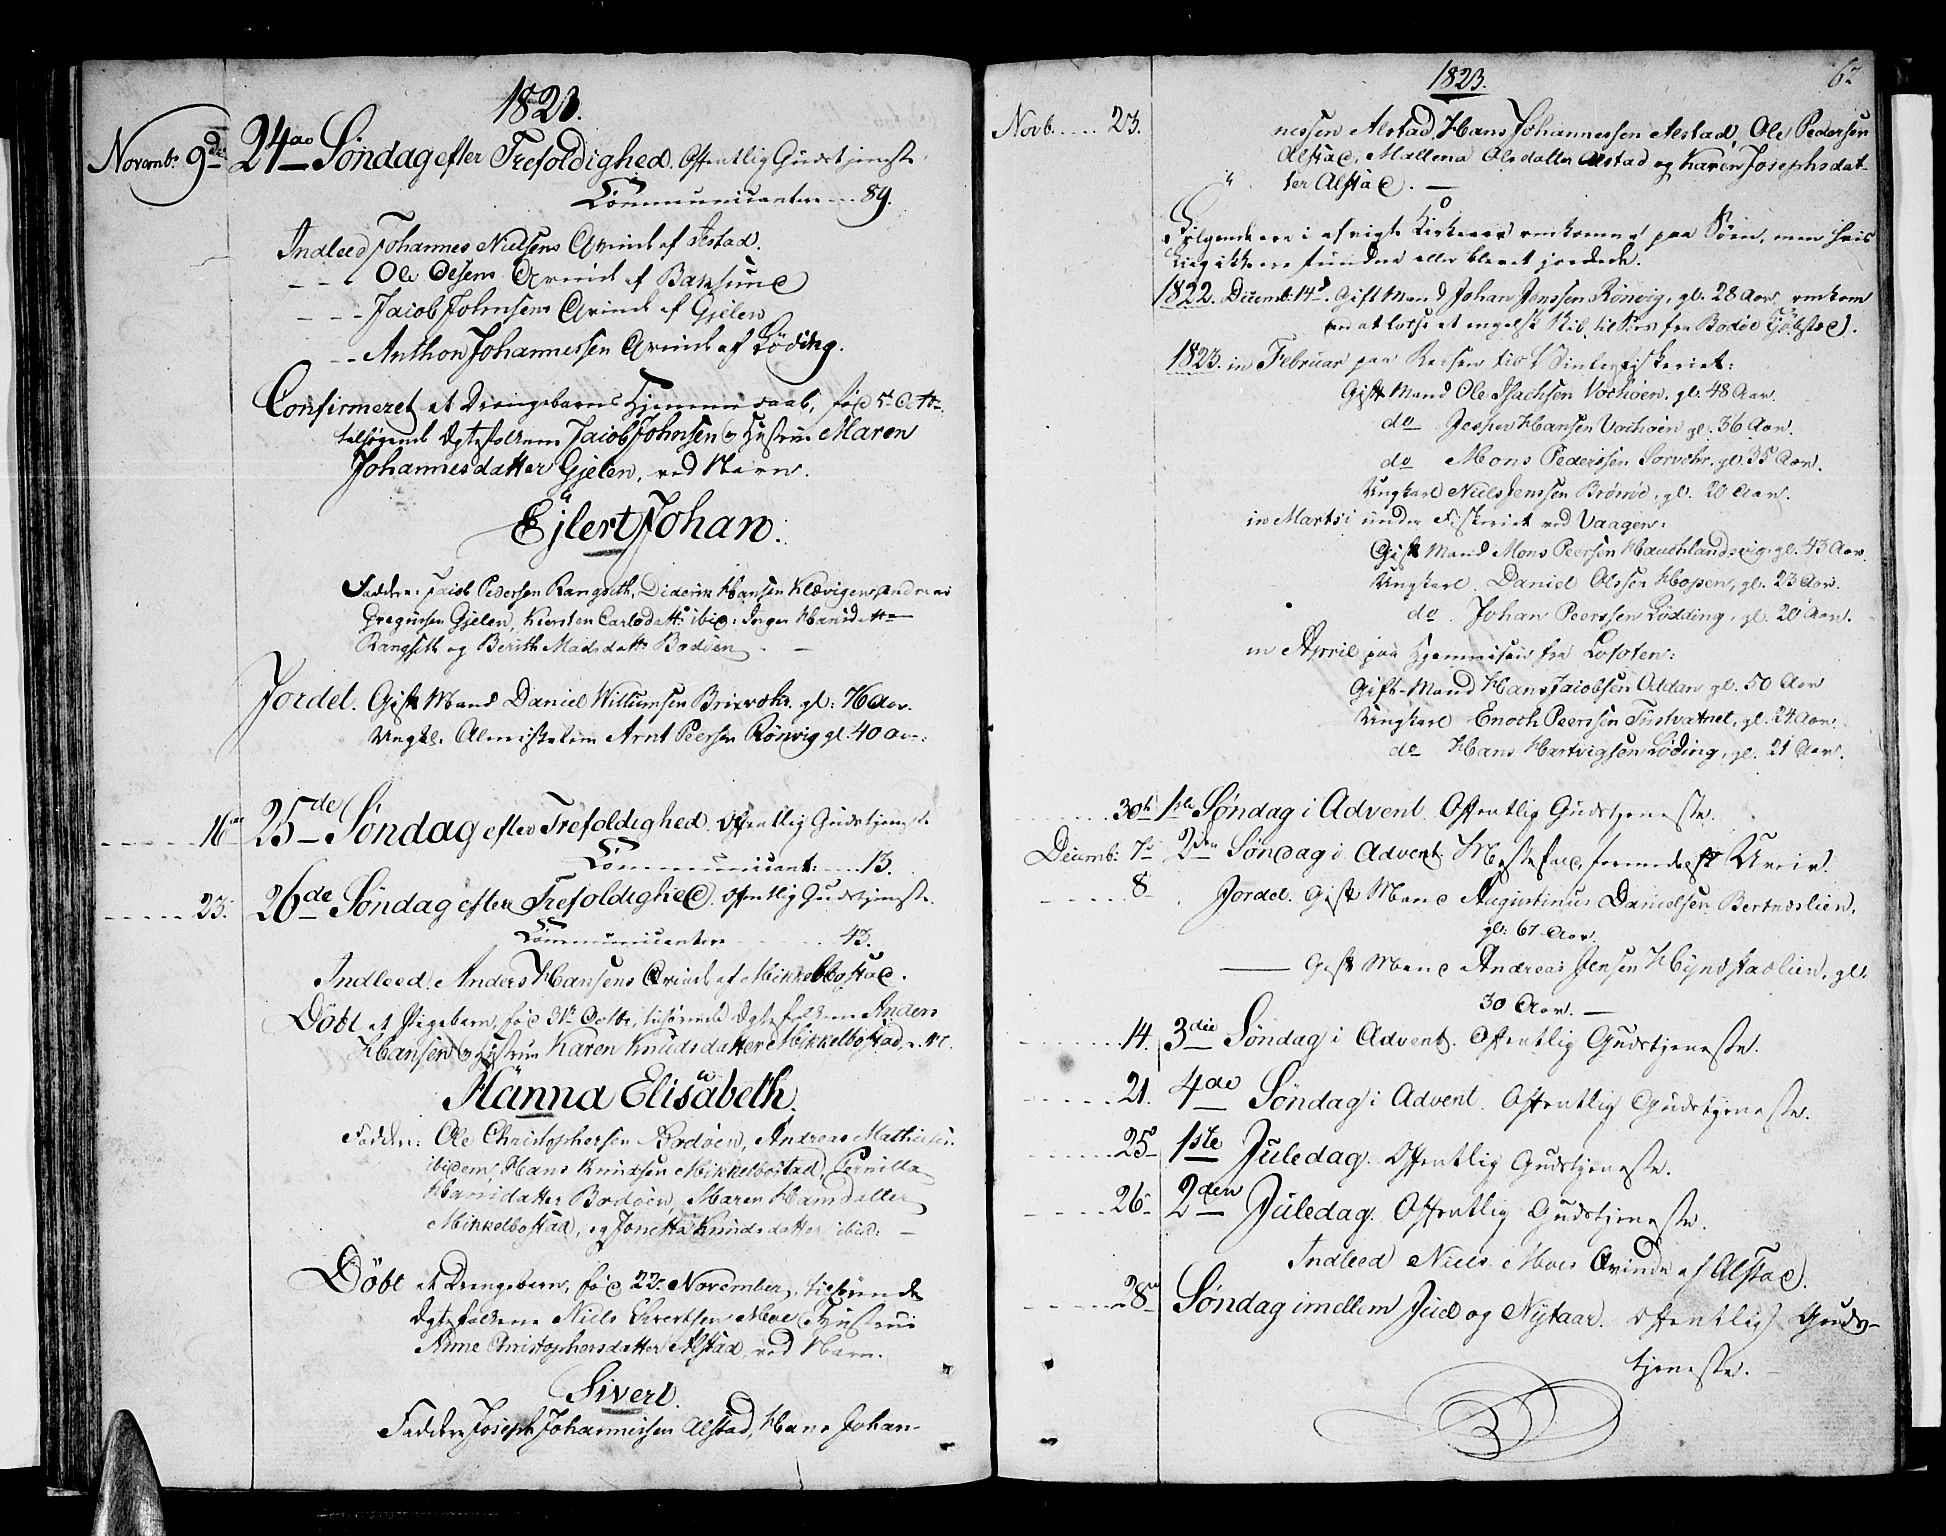 1823.
Novemb: 9de 24de Søndag efter Trefoldighed. Offentlig Gudstjeneste.
Communicantere --- 89.
Indleed Johannes Nielsens Qvinde af Jestad.
- - - Ole Olsens Qvinde af
- - - Jacob Johnsens Qvinde af Gjelen
- - - Anthon Johannessen Qvinde af Løding.
Confirmeret et Drengebarns Hjemmedaab, fød 5te Octbr.
tilhørende Ægtefolkene Jacob Johnsen og Hustrue Maren
Johannesdatter Gjelen, ved Navn.
Ejlert Johan.
Faddere: Jacob Pedersen Rangseth, Diderik Hansen Kløvigen, Andreas
Gregusen Gjelen, Kiersten Carlsdatt: ibid: Inger Hansdatter
Rangseth og Berith Madsdatt: Bodøen
Jordet. Gift Mand Daniel Willumsen gl: 76 Aar.
Ungk: Almisselem Arnt Peersen Rønvig gl: 40 Aar:
- - - 16de 25de Søndag efter Trefoldighed. Offentlig Gudstjeneste
Communicant: --- 13.
- - - 23. 26de Søndag efter Trefoldighed. Offentlig Gudstjeneste.
Communicantere --- 43.
Indleed: Anders Hansens Qvinde af Mikkelbostad.
Döbt et Pigebarn, fød 31te Octbr, tilhørende Ægtefolkene Anders
Hansen og Hustrue Karen Knudsdatter Mikkelbostad, v. N.
Hanna Elisabeth.
Faddere: Ole Christophersen Bodøen, Andreas Mathisen
ibidem, Hans Knudsen Mikkelbostad, Pernilla
Hansdatter Bodøen, Maren Hansdatter
Mikkelbostad, og Jonetta Knudsdatter ibid: —
Döbt et Drengebarn, fød 23. November, tilhørende
Ægtefolkene Niels Evertsen Moe og Hustrue
Anne Christophersdatter Alstad, ved Navn.
Sivert.
Faddere Joseph Johannessen Alstad, Hans Johan-
1823.
62
Novb. --- 23.
nessen Alstad, Hans Johannessen Alstad, Ole Pedersen
Alstad, Mallena Olsdatter Alstad og Karen Josephsdat-
ter Alstad. —
Følgende ere i afvigte Kirkeaar omkomne paa Søen, men hvis
Liig ikke ere fundne eller blevet jordede.
1822. Decemb: 14d. Gift Mand Johan Jenssen Rönvig, gl. 28 Aar, omkom
ved at lodse et engelsk Skib til Søes fra Bodøe Kjøbsted.
1823. in Februar paa Reisen til Vinterfiskeriet:
Gift Mand Ole Isachsen Vochöen, gl. 48 Aar.
do Jesper Hansen Vochöen gl. 36 Aar.
do Mons Pederssen gl. 35 Aar.
Ungkarl Niels Jenssen gl. 20 Aar.
in Martsi under Fiskeriet ved Vaagen:
Gift Mand Mons Peersen Hauchlandsvig, gl. 43 Aar
Ungkarl Daniel Olssen Hopen, gl. 23 Aar.
do. Johan Peerssen Lödding, gl. 20 Aar.
in April paa Hjemreisen fra Lofoten:
Gift-Mand Hans Jacobsen Valdan gl. 50 Aar
Ungkarl Enoch Peerssen Tustvatnet, gl. 24 Aar.
do Hans Hartvigsen Löding, gl. 21 Aar.
- - - 30te 1ste Søndag i Advent. Offentlig Gudstjeneste.
Decemb: 7de 2den Søndag i Advent. Messefald formedelst Uveir.
- - - 8 Jordet. Gift Mand Augustinus Danielsen Bertnæslien,
gl: 67 Aar.
— Gift Mand Andreas Jensen Hyndstadlien, gl.
30 Aar. —
- - - 14. 3die Søndag i Advent. Offentlig Gudstjeneste.
- - - 21. 4de Søndag i Advent. Offentlig Gudstjeneste.
- - - 25. 1ste Juledag. Offentlig Gudstjeneste.
- - - 26. 2den Juledag. Offentlig Gudstjeneste.
Indleed Niels Moes Qvinde af Alstad.
- - - 28. Søndag imellem Juul og Nytaar. Offentlig Guds-
tjeneste.